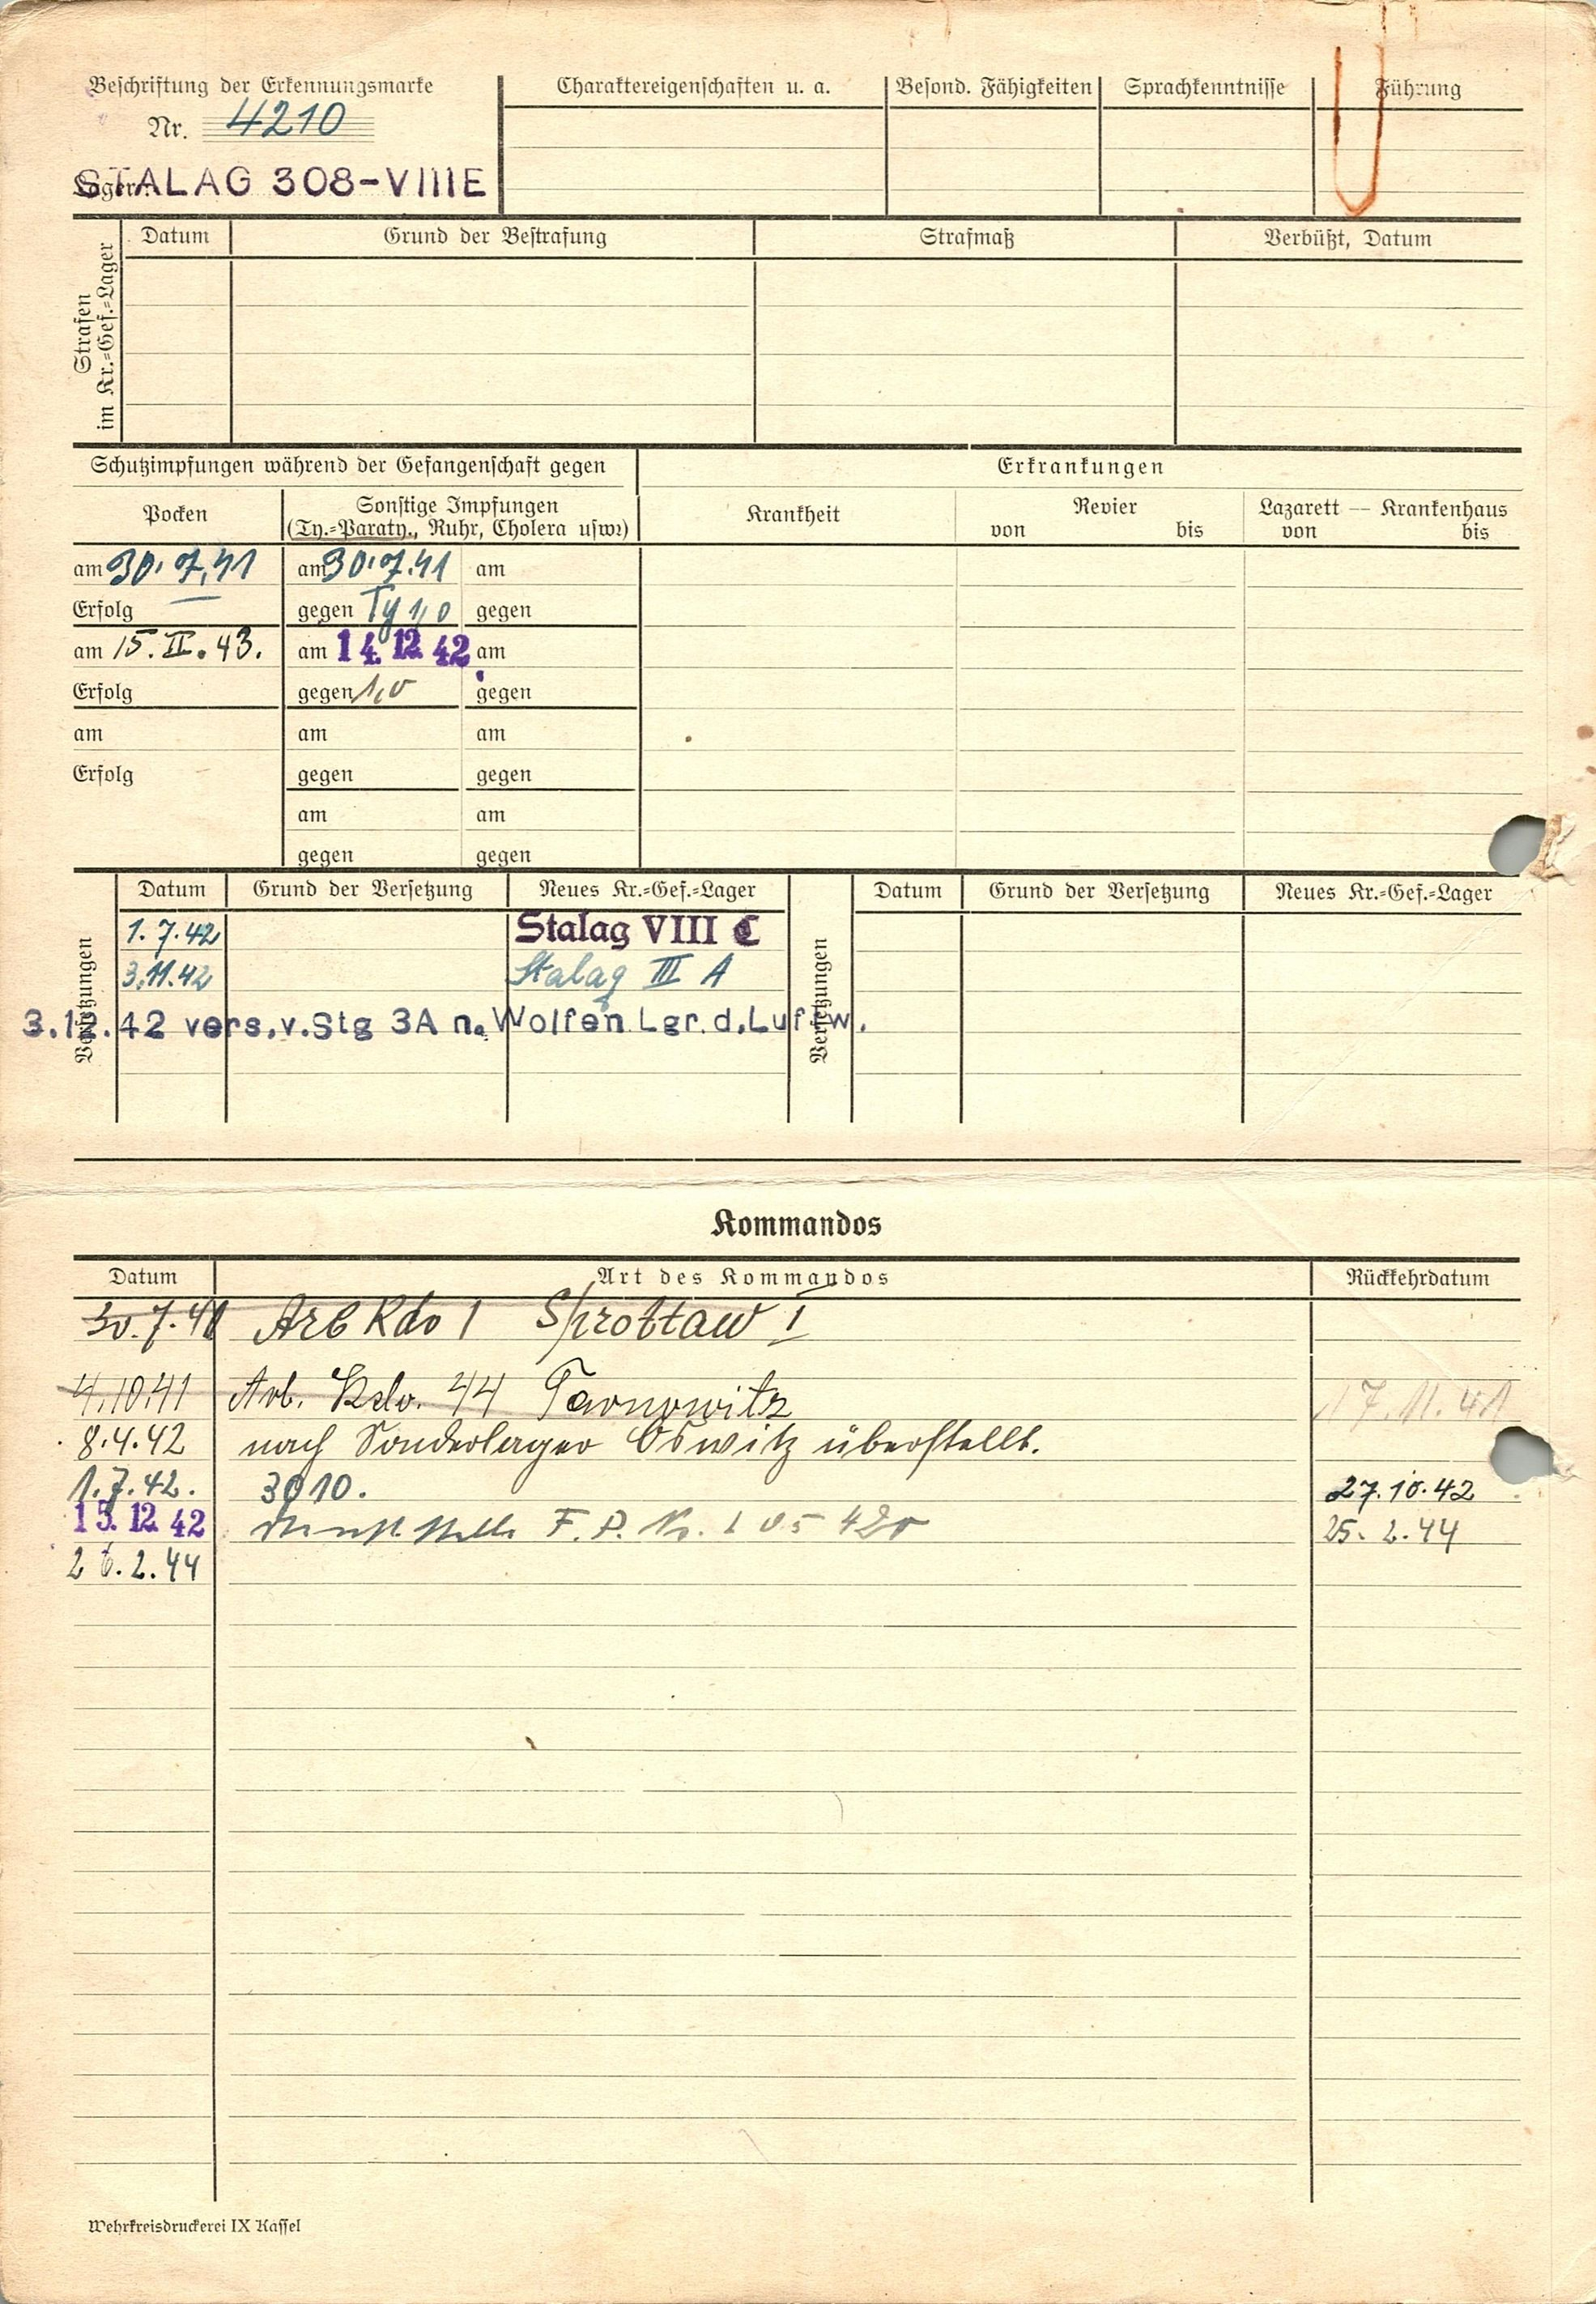 Beschriftung der Erkennungsmarke
Nr. 4210
Lager:
STALAG 308-VIIIE
Charaktereigenschaften u. a.
Besond. Fähigkeiten
Sprachkenntnisse
Führung
Strafen
im Kr.=Gef.=Lager
Datum
Grund der Bestrafung
Strafmaß
Verbüßt, Datum
Schutzimpfungen während der Gefangenschaft gegen
Erkrankungen
Pocken
Sonstige Impfungen
(Ty.=Paraty., Ruhr, Cholera usw.)
Krankheit
Revier
von bis
Lazarett — Krankenhaus
von bis
am 30.7.41 am 30.7.41 am
Erfolg — gegen Ty 1,0 gegen
am 15.II.43. am 14.12.42 am
Erfolg gegen 1,0 gegen
am am am
Erfolg gegen gegen
am am
gegen gegen
Versetzungen
Datum Grund der Versetzung Neues Kr.=Gef.=Lager
1.7.42 Stalag VIII C
3.11.42 Stalag III A
3.12.42 vers.v.Stg 3A n. Wolfen Lgr.d.Luftw.
Versetzungen
Datum Grund der Versetzung Neues Kr.=Gef.=Lager
Kommandos
Datum Art des Kommandos Rückkehrdatum
30.7.41 Arb Kdo 1 Sprottau I
4.10.41 Arb. Kdo. 44 Tarnowitz 17.11.41
8.4.42 nach Sonderlager Oswitz überstellt.
1.7.42. 3010. 27.10.42
15.12.42 F.P. Nr. 25.2.44
26.2.44
Wehrkreisdruckerei IX Kassel